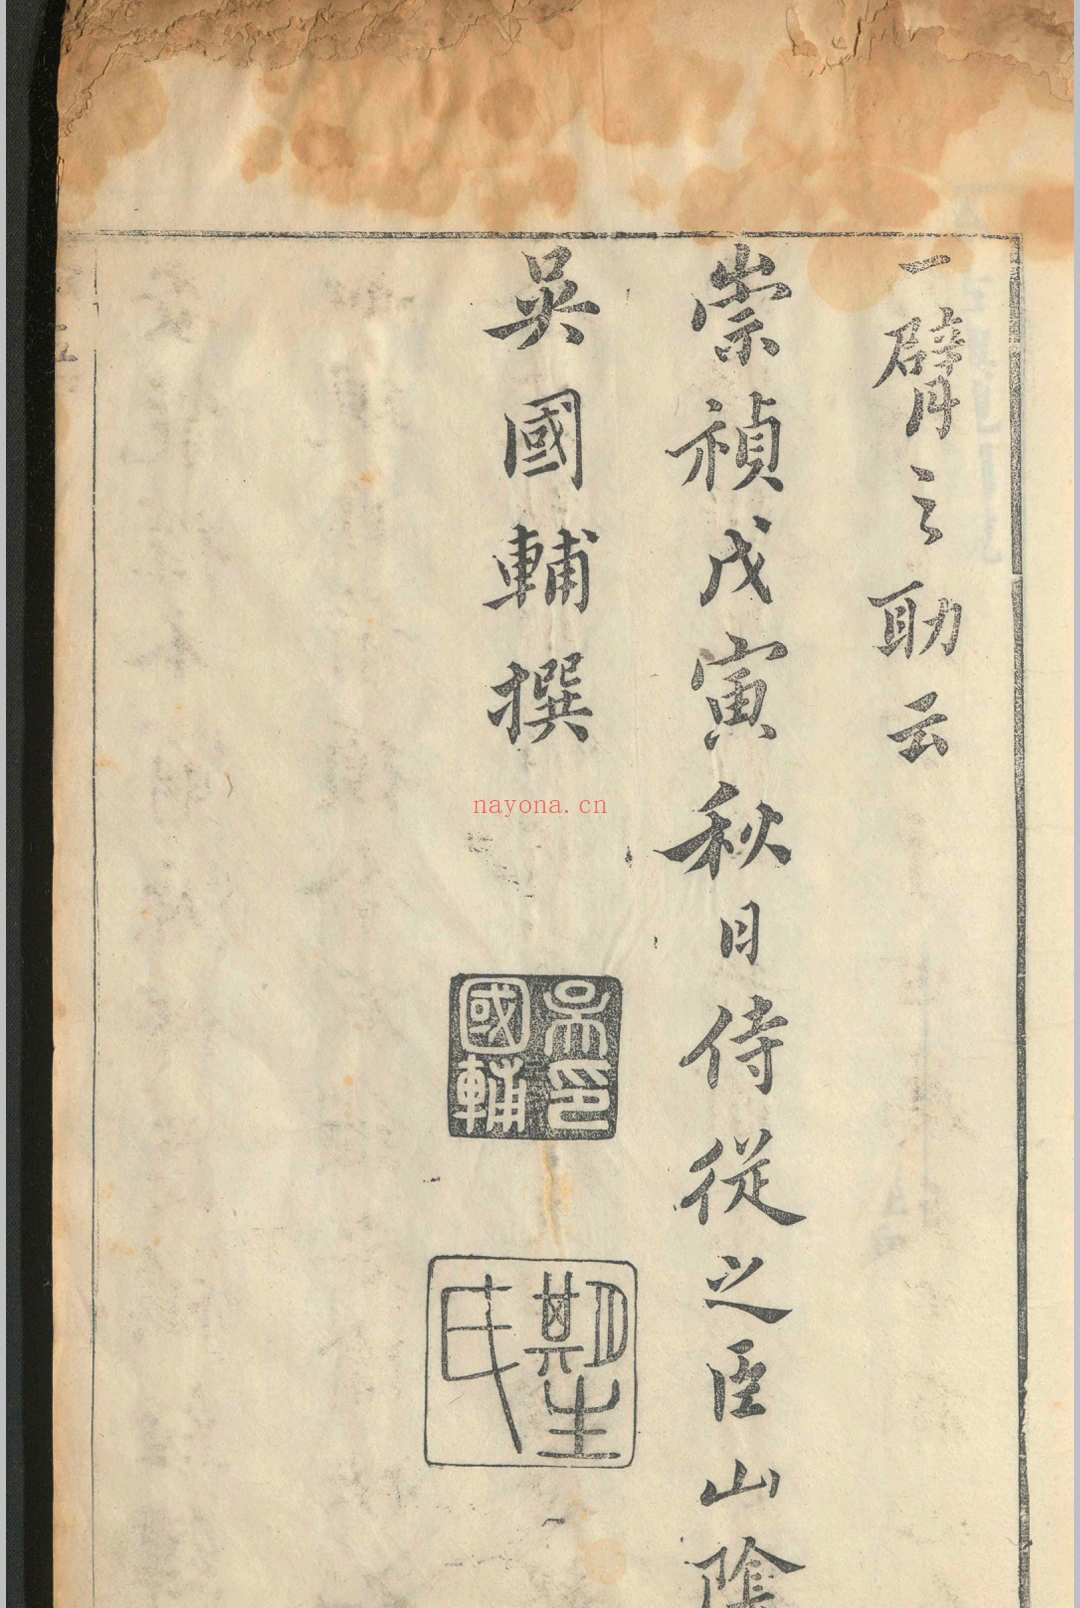 一臂之助云
崇禎戊寅秋日侍從之臣山陰
吳國輔撰
吳印國輔
期生氏
nayona.cn